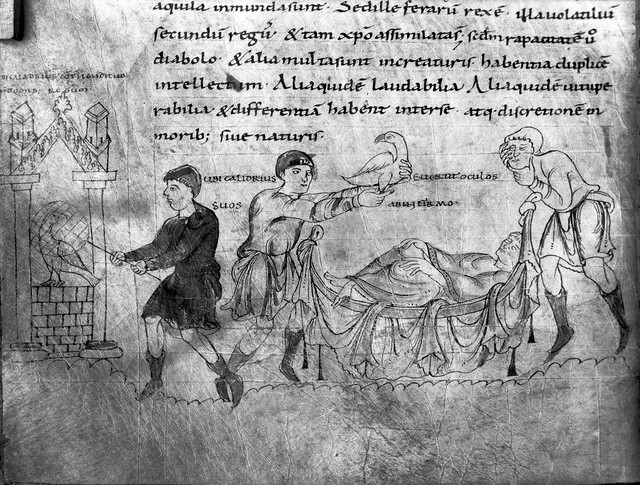 aquila inmunda sunt· Sed ille ferarũ rex ẽ· illa volatiliũ
secundũ regũ· & tam xp̄o assimilatas̗ sedm rapacitatẽ ů
diabolo· & alia multa sunt in creaturis habentia duplicẽ
intellectum· Alia quidẽ laudabilia Alia quidẽ vitupe
rabilia & differentiã habent inter se· atq· discretionẽ in
morib; sive naturis·
CUBICALORIUS
SUOS
EUERTIT OCULOS
AB INFIRMO·